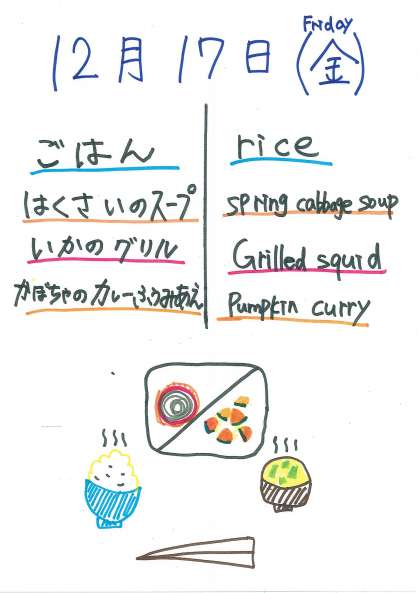 Friday
12月17日(金)
ごはん
rice
はくさいのスープ
spring cabbage soup
いかのグリル
Grilled squid
かぼちゃのカレーふうみあえ
Pumpkin curry